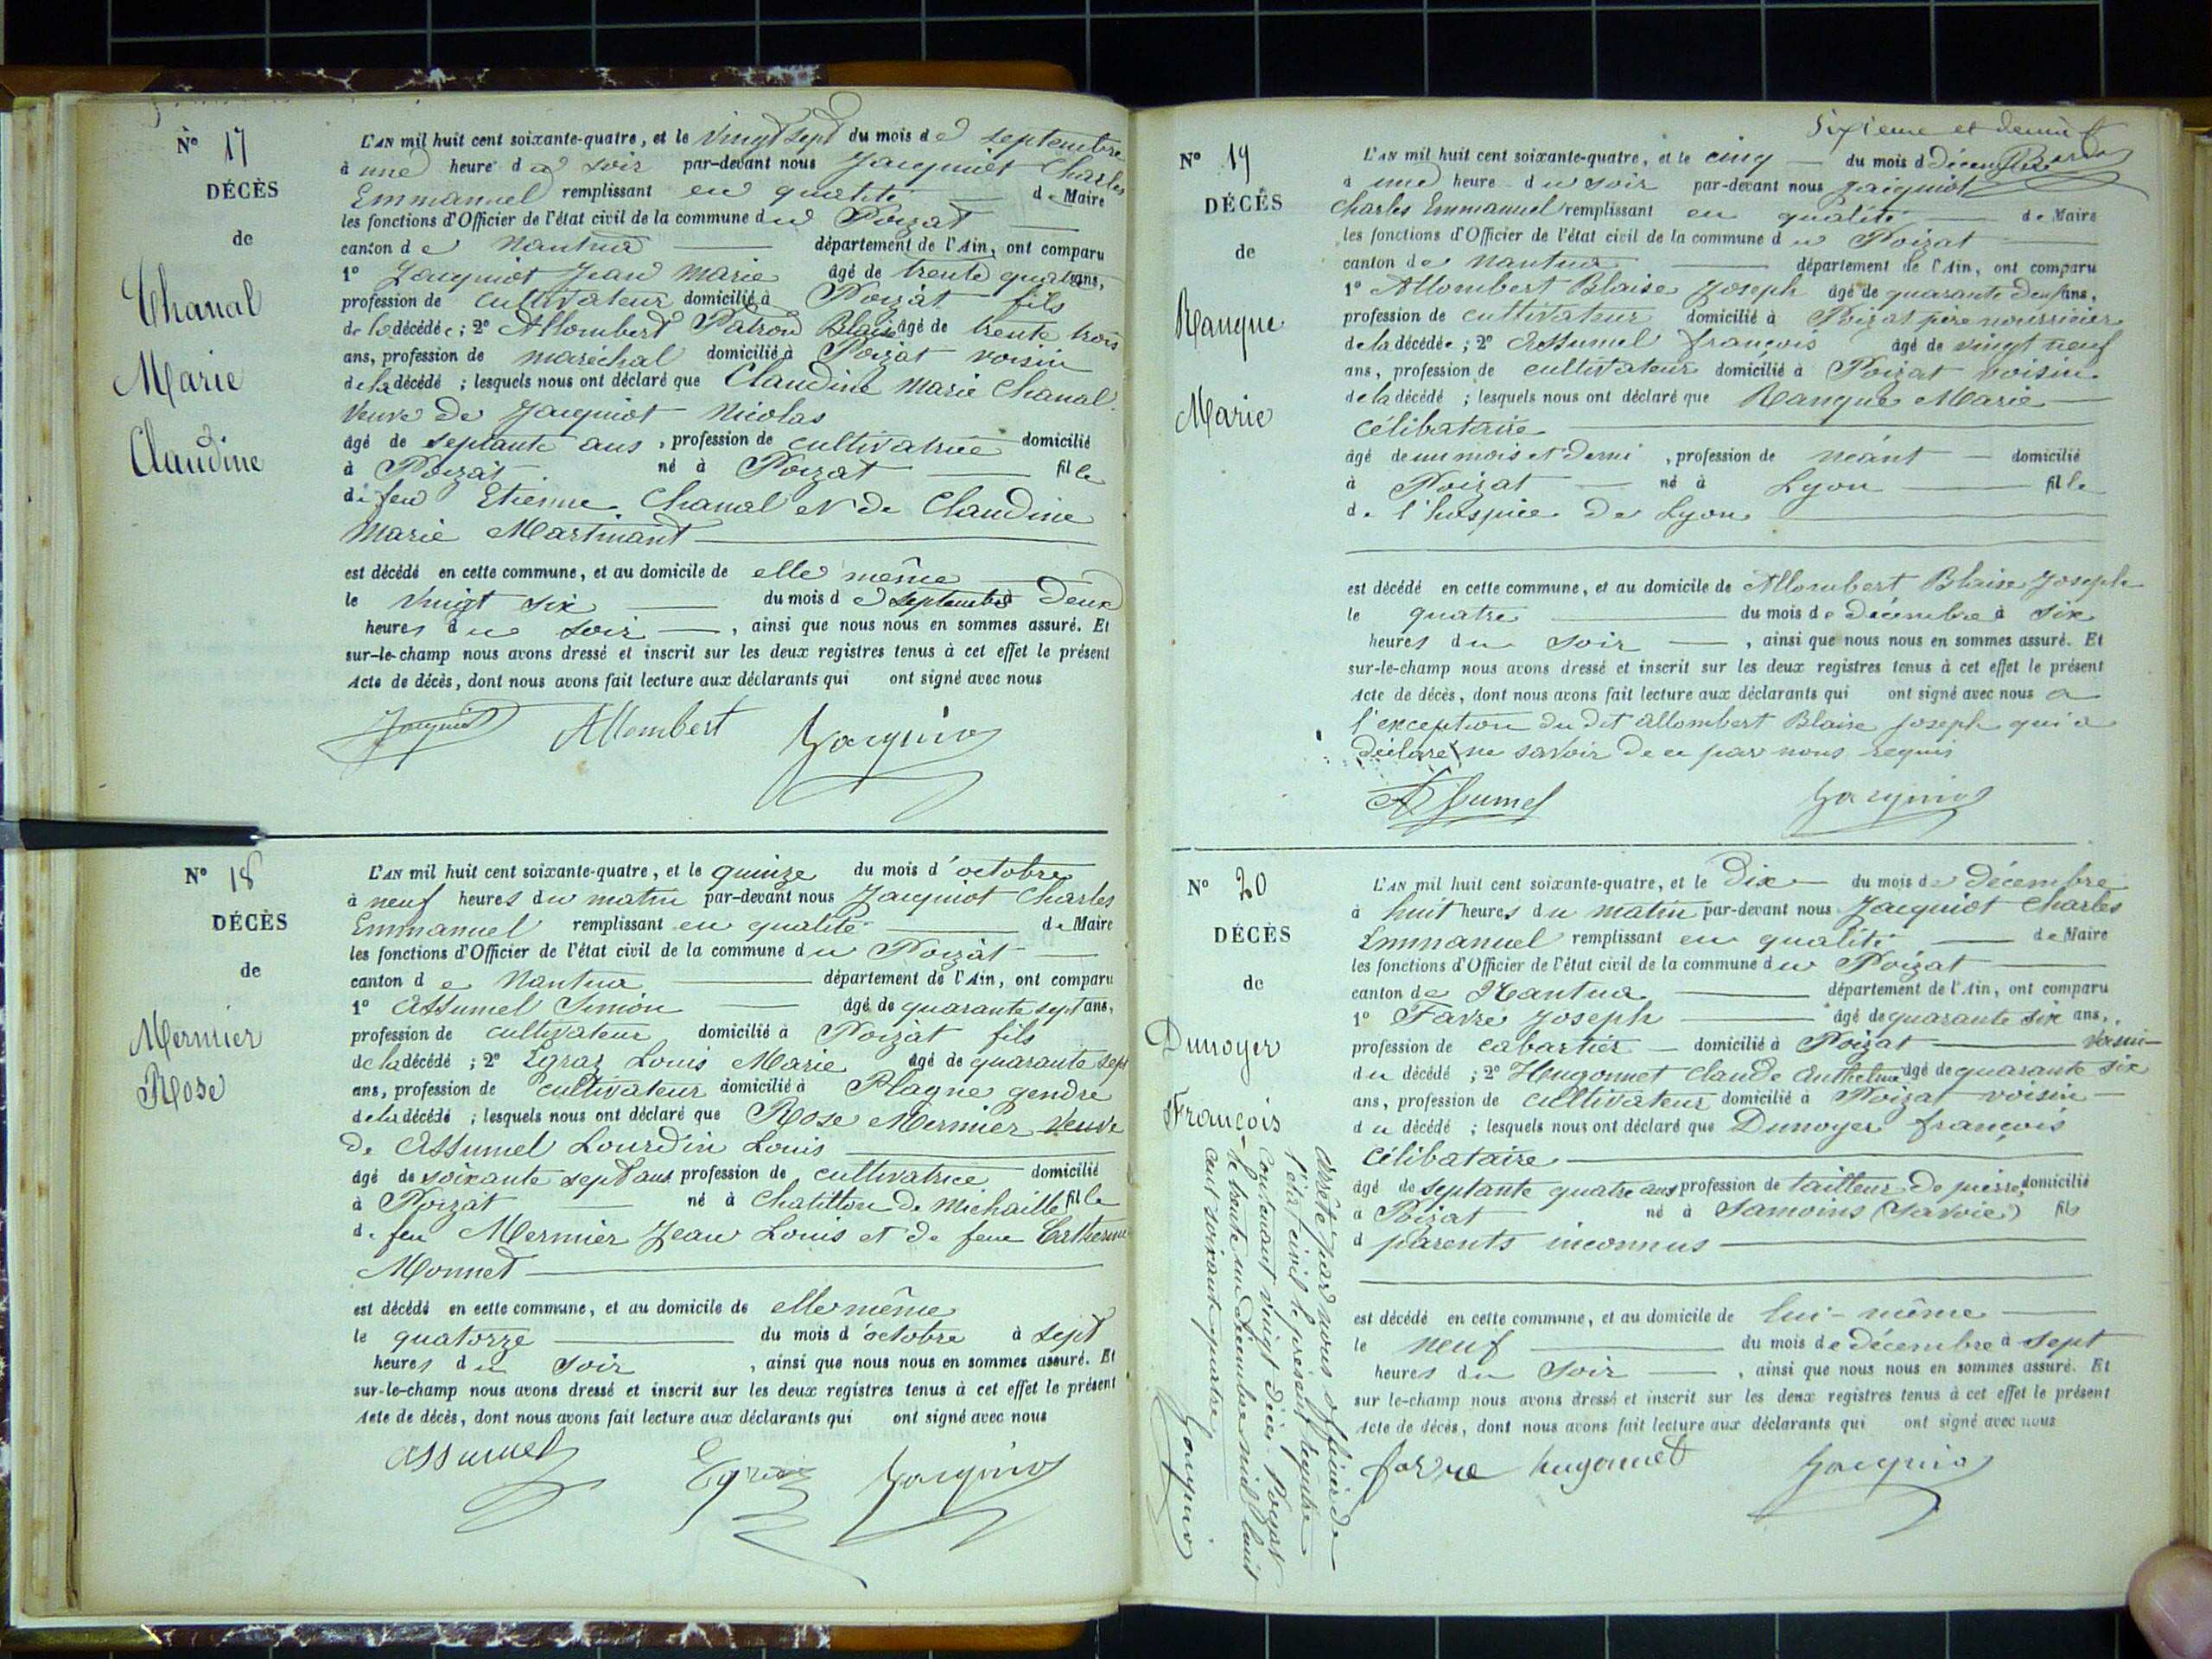 N° 17
DÉCÈS
de
Chanal
Marie
Claudine
L'AN mil huit cent soixante-quatre, et le vingt sept du mois de septembre
à une heure du soir par-devant nous Jacquiot Charles
Emmanuel remplissant en qualité de Maire
les fonctions d'Officier de l'état civil de la commune du Poizat
canton de Nantua département de l'Ain, ont comparu
1° Jacquiot Jean Marie âgé de trente quatre ans,
profession de cultivateur domicilié à Poizat fils
de la décédée; 2° Allombert Patron Blaise âgé de trente trois
ans, profession de maréchal domicilié à Poizat voisin
de la décédé ; lesquels nous ont déclaré que Claudine Marie Chanal
veuve de Jacquiot Nicolas
âgé de septante ans, profession de cultivatrice domicilié
à Poizat né à Poizat fille
de feu Etienne Chanal et de Claudine
Marie Martinant
est décédé en cette commune, et au domicile de elle même
le vingt six du mois de septembre à deux
heures du soir, ainsi que nous nous en sommes assuré. Et
sur-le-champ nous avons dressé et inscrit sur les deux registres tenus à cet effet le présent
Acte de décès, dont nous avons fait lecture aux déclarants qui ont signé avec nous
Jacquiot Allombert Jacquiot
N° 18
DÉCÈS
de
Mermier
Rose
L'AN mil huit cent soixante-quatre, et le quinze du mois d'octobre
à neuf heures du matin par-devant nous Jacquiot Charles
Emmanuel remplissant en qualité de Maire
les fonctions d'Officier de l'état civil de la commune du Poizat
canton de Nantua département de l'Ain, ont comparu
1° Assumel Simon âgé de quarante sept ans,
profession de cultivateur domicilié à Poizat fils
de la décédé ; 2° Egraz Louis Marie âgé de quarante sept
ans, profession de cultivateur domicilié à Plagne gendre
de la décédé ; lesquels nous ont déclaré que Rose Mermier veuve
de Assumel Lourdin Louis
âgé de soixante sept ans profession de cultivatrice domicilié
à Poizat né à Chatillon de Michaille fille
de feu Mermier Jean Louis et de feue Catherine
Monnet
est décédé en cette commune, et au domicile de elle même
le quatorze du mois d'octobre à sept
heures du soir, ainsi que nous nous en sommes assuré. Et
sur-le-champ nous avons dressé et inscrit sur les deux registres tenus à cet effet le présent
Acte de décès, dont nous avons fait lecture aux déclarants qui ont signé avec nous
Assumel Egraz Jacquiot
Sixieme et dernier f
N° 19
DÉCÈS
de
Rangue
Marie
L'AN mil huit cent soixante-quatre, et le cinq du mois de décembre
à une heure du soir par-devant nous Jacquiot
Charles Emmanuel remplissant en qualité de Maire
les fonctions d'Officier de l'état civil de la commune du Poizat
canton de Nantua département de l'Ain, ont comparu
1° Allombert Blaise Joseph âgé de quarante deux ans,
profession de cultivateur domicilié à Poizat père nourricier
de la décédée; 2° Assumel françois âgé de vingt neuf
ans, profession de cultivateur domicilié à Poizat voisin
de la décédé ; lesquels nous ont déclaré que Rangue Marie
célibataire
âgé de un mois et demi, profession de néant domicilié
à Poizat né à Lyon fille
de l'hospice de Lyon
est décédé en cette commune, et au domicile de Allombert Blaise Joseph
le quatre du mois de décembre à six
heures du soir, ainsi que nous nous en sommes assuré. Et
sur-le-champ nous avons dressé et inscrit sur les deux registres tenus à cet effet le présent
Acte de décès, dont nous avons fait lecture aux déclarants qui ont signé avec nous a
l'exception du dit allombert Blaise Joseph qui a
déclaré ne savoir de ce par nous requis
Assumel Jacquiot
N° 20
DÉCÈS
de
Dunoyer
François
L'AN mil huit cent soixante-quatre, et le dix du mois de décembre
à huit heures du matin par-devant nous Jacquiot Charles
Emmanuel remplissant en qualité de Maire
les fonctions d'Officier de l'état civil de la commune du Poizat
canton de Nantua département de l'Ain, ont comparu
1° Favre Joseph âgé de quarante six ans,
profession de cabartier domicilié à Poizat voisin
du décédé ; 2° Hugonnet Claude Anthelme âgé de quarante six
ans, profession de cultivateur domicilié à Poizat voisin
du décédé ; lesquels nous ont déclaré que Dunoyer françois
célibataire
âgé de septante quatre ans profession de tailleur de pierre, domicilié
à Poizat né à Samoins (Savoie) fils
d parents inconnus
est décédé en cette commune, et au domicile de lui-même
le neuf du mois de décembre à sept
heures du soir, ainsi que nous nous en sommes assuré. Et
sur le-champ nous avons dressé et inscrit sur les deux registres tenus à cet effet le présent
Acte de décès, dont nous avons fait lecture aux déclarants qui ont signé avec nous
favre hugonnet Jacquiot
arrêté par nous officier de
l'état civil le présent registre
contenant vingt décès. Poizat
le trente un décembre mil huit
cent soixante quatre
Jacquiot